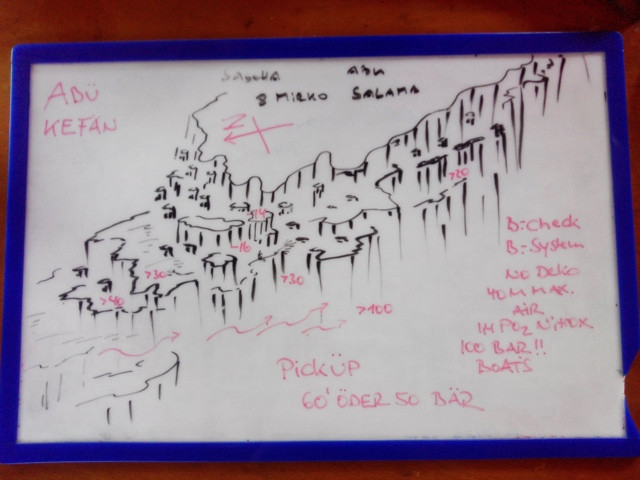 ABÜ
KEFÁN
ABU
& MIRKO SALAMA
N
14
-16
>20
>30
>40
>30
>100
B-Check
B-System
NO DEKO
40 M MAX.
AIR
1M PO2 NITROX
100 BAR!!
BOATS
PICKÜP
60' ÖDER 50 BÄR